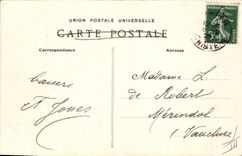 UNION POSTALE UNIVERSELLE
CARTE POSTALE
Correspondance
Adresse
baisers
F Jones
Madame L
de Robert
Mérindol
(Vaucluse)